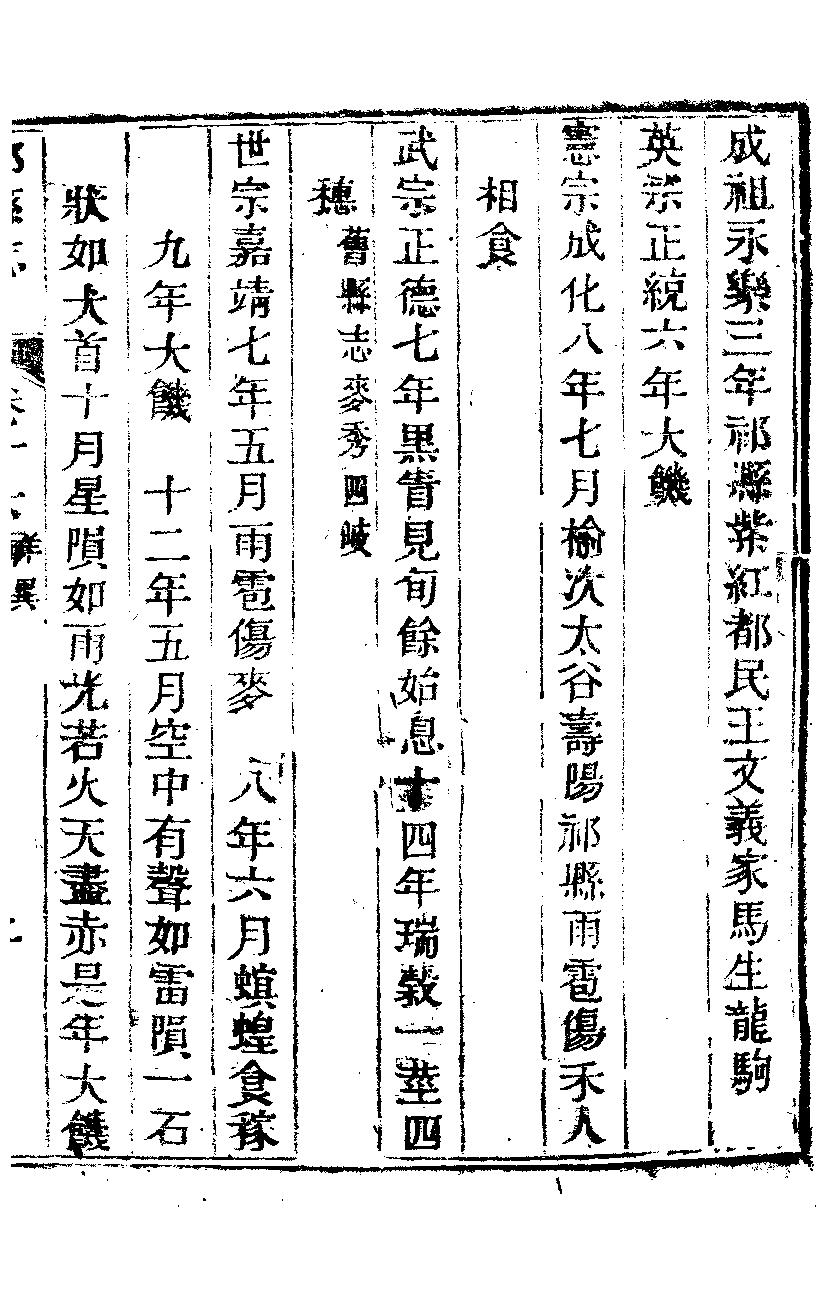 成祖永樂三年祁縣紫紅都民王文義家馬生龍駒
英宗正統六年大饑
憲宗成化八年七月榆次太谷壽陽祁縣雨雹傷禾人
相食
武宗正德七年黑眚見旬餘始息十四年瑞穀一莖四
穗 舊縣志麥秀四岐
世宗嘉靖七年五月雨雹傷麥 八年六月螟蝗食稼
九年大饑 十二年五月空中有聲如雷隕一石
狀如犬首十月星隕如雨光若火天盡赤是年大饑
祥異